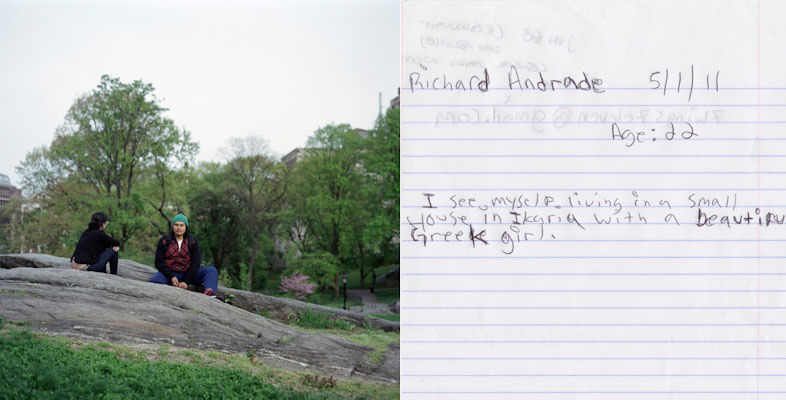 Richard Andrade 5/1/11
Age: 22
I see myself living in a small
house in Ikaria with a beautifu
Greek girl.